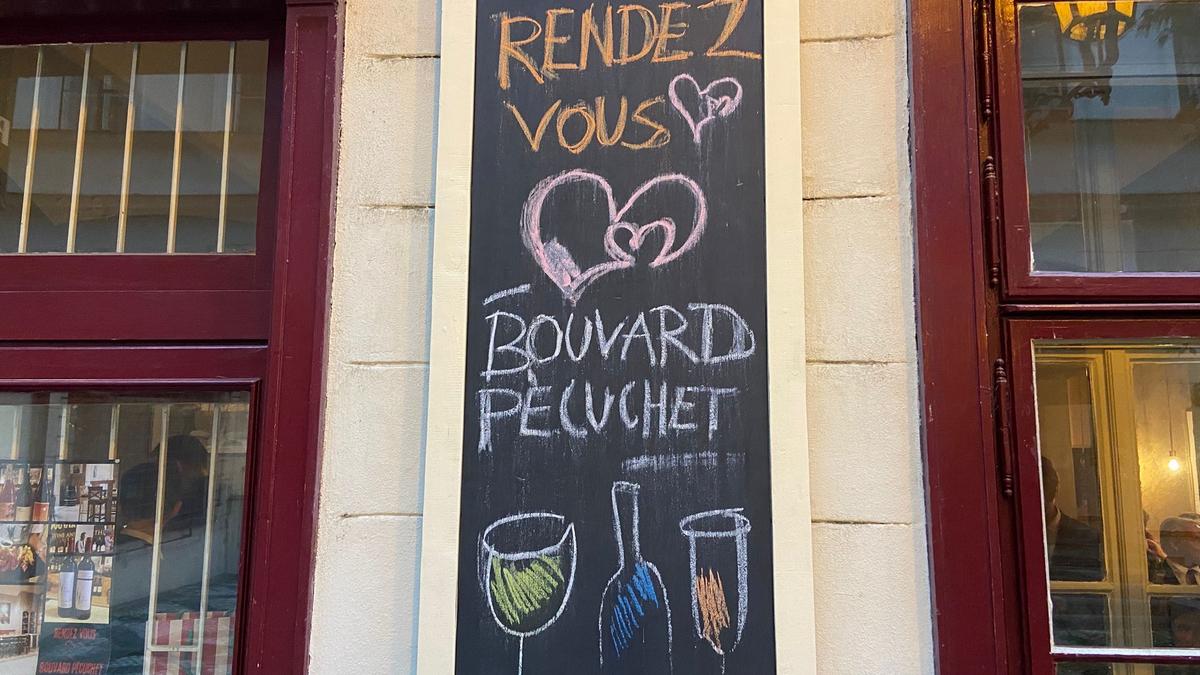 RENDEZ
VOUS
BOUVARD
PÉCUCHET
RENDEZ VOUS
BOUVARD PÉCUCHET